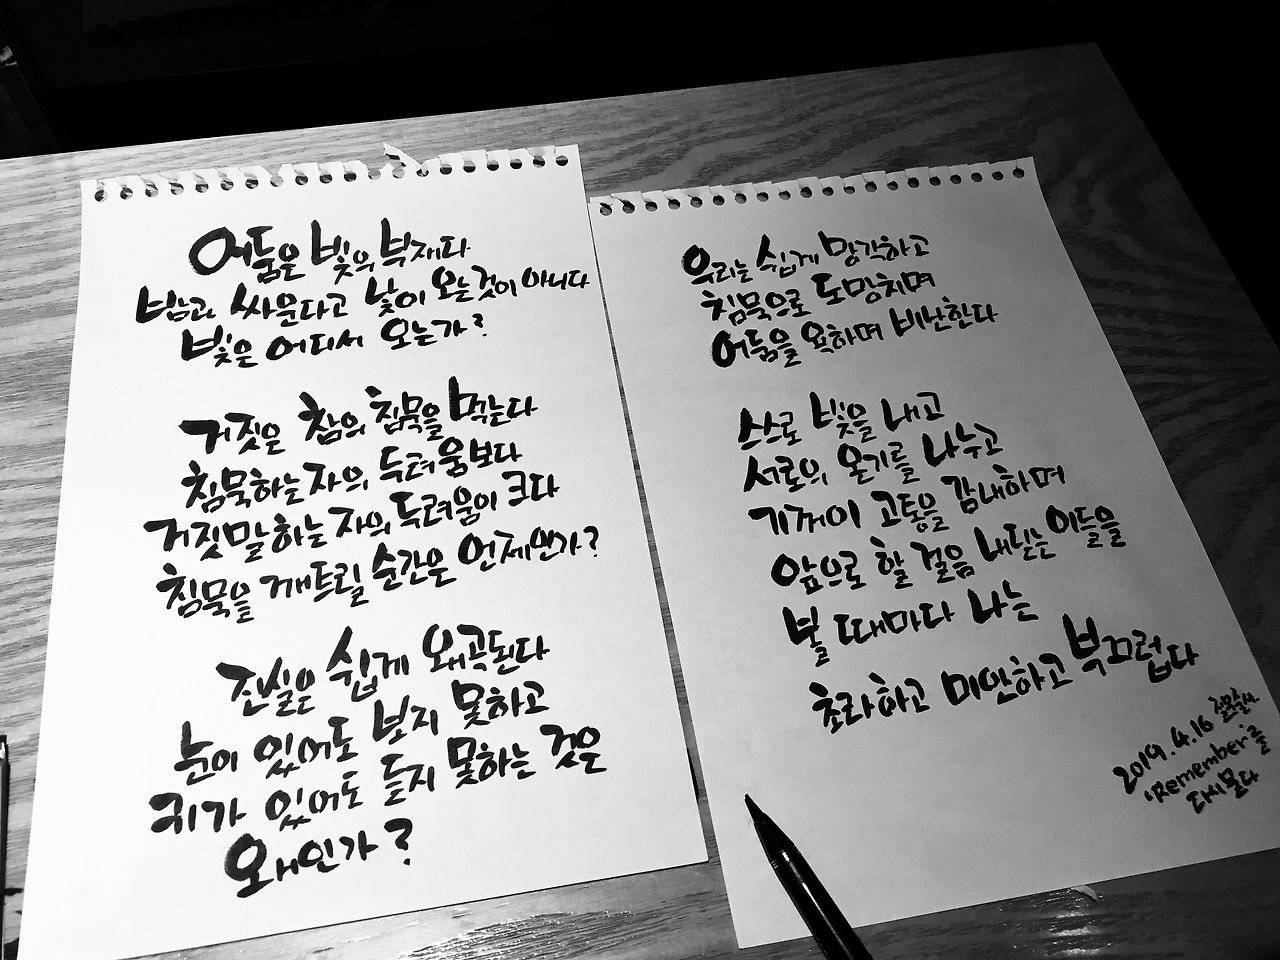 어둠은 빛의 부재다
밤과 싸운다고 낮이 오는 것이 아니다
빛은 어디서 오는가?
거짓은 참의 침묵을 먹는다
침묵하는 자의 두려움보다
거짓말하는 자의 두려움이 크다
침묵을 깨트릴 순간은 언제인가?
진실은 쉽게 왜곡된다
눈이 있어도 보지 못하고
귀가 있어도 듣지 못하는 것은
왜인가?
우리는 쉽게 망각하고
침묵으로 도망치며
어둠을 욕하며 비난한다
스스로 빛을 내고
서로의 온기를 나누고
기꺼이 고통을 감내하며
앞으로 한 걸음 내딛는 이들을
볼 때마다 나는
초라하고 미안하고 부끄럽다
2019.4.16
'Remember'를
다시 묻다